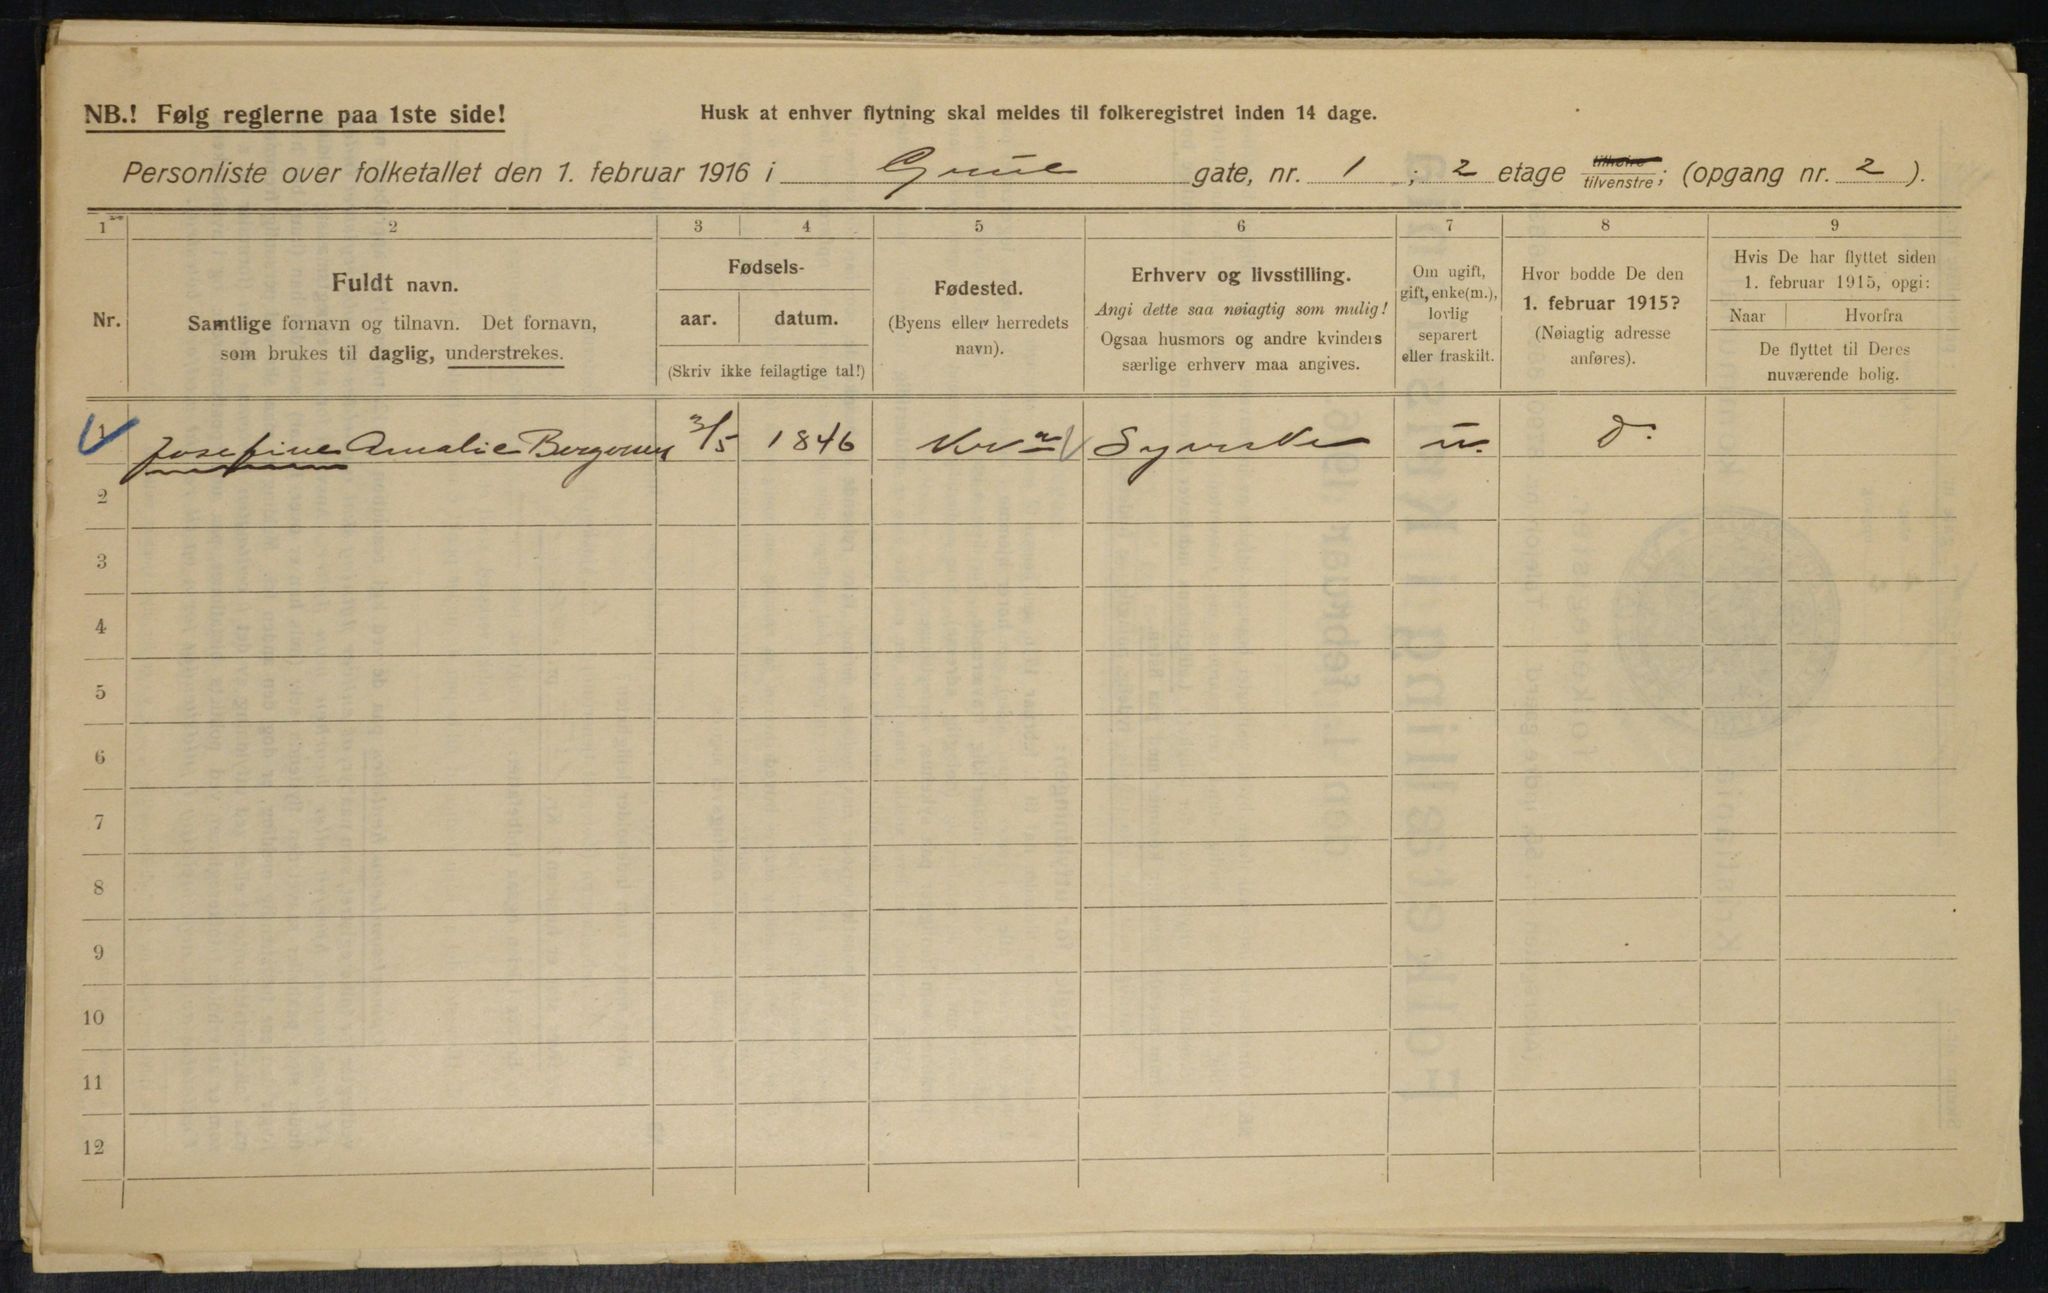 NB.! Følg reglerne paa 1ste side!
Husk at enhver flytning skal meldes til folkeregistret inden 14 dage.
Personliste over folketallet den 1. februar 1916 i Grüne gate, nr. 1 ; 2 etage tilhøire/tilvenstre; (opgang nr. 2 ).
1 2 3 4 5 6 7 8 9
Nr.
Fuldt navn.
Samtlige fornavn og tilnavn. Det fornavn,
som brukes til daglig, understrekes.
Fødsels-
aar. datum.
(Skriv ikke feilagtige tal!)
Fødested.
(Byens eller herredets
navn).
Erhverv og livsstilling.
Angi dette saa nøiagtig som mulig!
Ogsaa husmors og andre kvinders
særlige erhverv maa angives.
Om ugift,
gift, enke(m.),
lovlig
separert
eller fraskilt.
Hvor bodde De den
1. februar 1915?
(Nøiagtig adresse
anføres).
Hvis De har flyttet siden
1. februar 1915, opgi:
Naar Hvorfra
De flyttet til Deres
nuværende bolig.
1 Josefine Amalie 3/5 1846 Kra Syerske u. D.
2
3
4
5
6
7
8
9
10
11
12